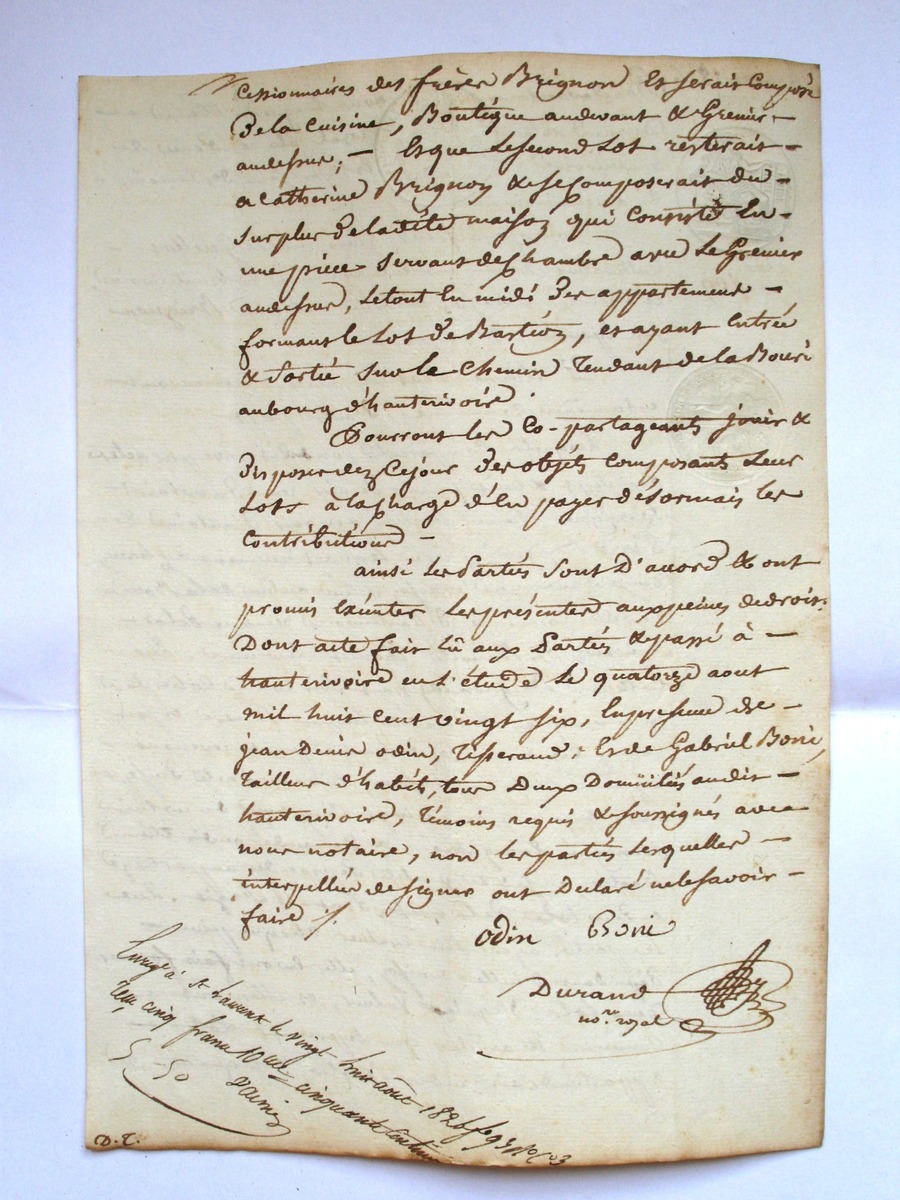 Cessionnaires des frères Brignon Et serait Composé
De la Cuisine, Boutique audevant & Grenier
audessus; — Et que Le second Lot resterait —
a Catherine Brignon & se Composerait du —
surplus De ladite maison qui Consiste En —
une pièce servant de Chambre avec Le Grenier
audessus, Le tout En midi Des appartemens —
formant le Lot de , et ayant Entrée
& sortie sur le Chemin Tendant de la Bourie
au bourg d'hauterivoire .
Pourront les Co-partageants jouir &
Disposer dez Ce jour Des objets Composants Leur
Lots à la Charge d'En payer désormais les
Contributions —
ainsi Les Parties sont D'accord & ont
promis Exécuter Les présentes aux peines de droit.
Dont acte fait Lû aux Parties & passé à —
hauterivoire en L'étude Le quatorze aout
mil huit cent vingt six, En presence de —
jean Denis odin, Tisserand; Et de Gabriel Borie,
Tailleur d'habits, tous Deux Domiciliés audit —
hauterivoire, Témoins requis & soussignés avec
nous notaire, non les parties Lesquelles —
interpellées de signer ont Declaré ne le savoir —
faire ./.
odin Borie
Durand
no.re royal
Enreg.é à St Laurent le vingt août 1826 fo 93
cinq francs cinquante Centimes
5 - 50
D. T.